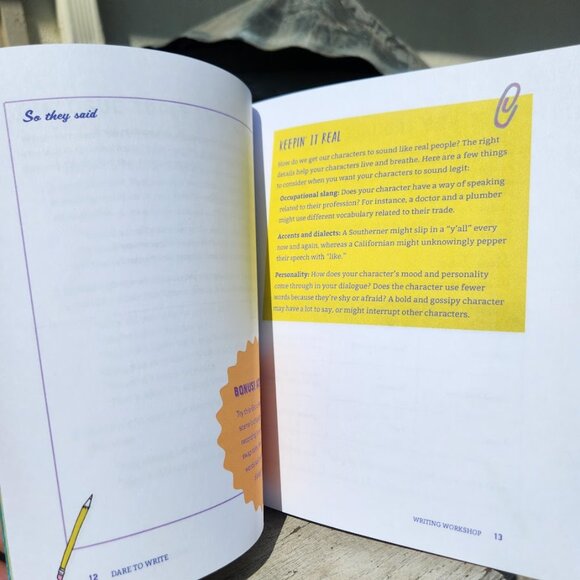 So they said
BONUS!
Try this
12 DARE TO WRITE
KEEPIN' IT REAL
How do we get our characters to sound like real people? The right
details help your characters live and breathe. Here are a few things
to consider when you want your characters to sound legit:
Occupational slang: Does your character have a way of speaking
related to their profession? For instance, a doctor and a plumber
might use different vocabulary related to their trade.
Accents and dialects: A Southerner might slip in a "y'all" every
now and again, whereas a Californian might unknowingly pepper
their speech with "like."
Personality: How does your character's mood and personality
come through in your dialogue? Does the character use fewer
words because they're shy or afraid? A bold and gossipy character
may have a lot to say, or might interrupt other characters.
WRITING WORKSHOP 13